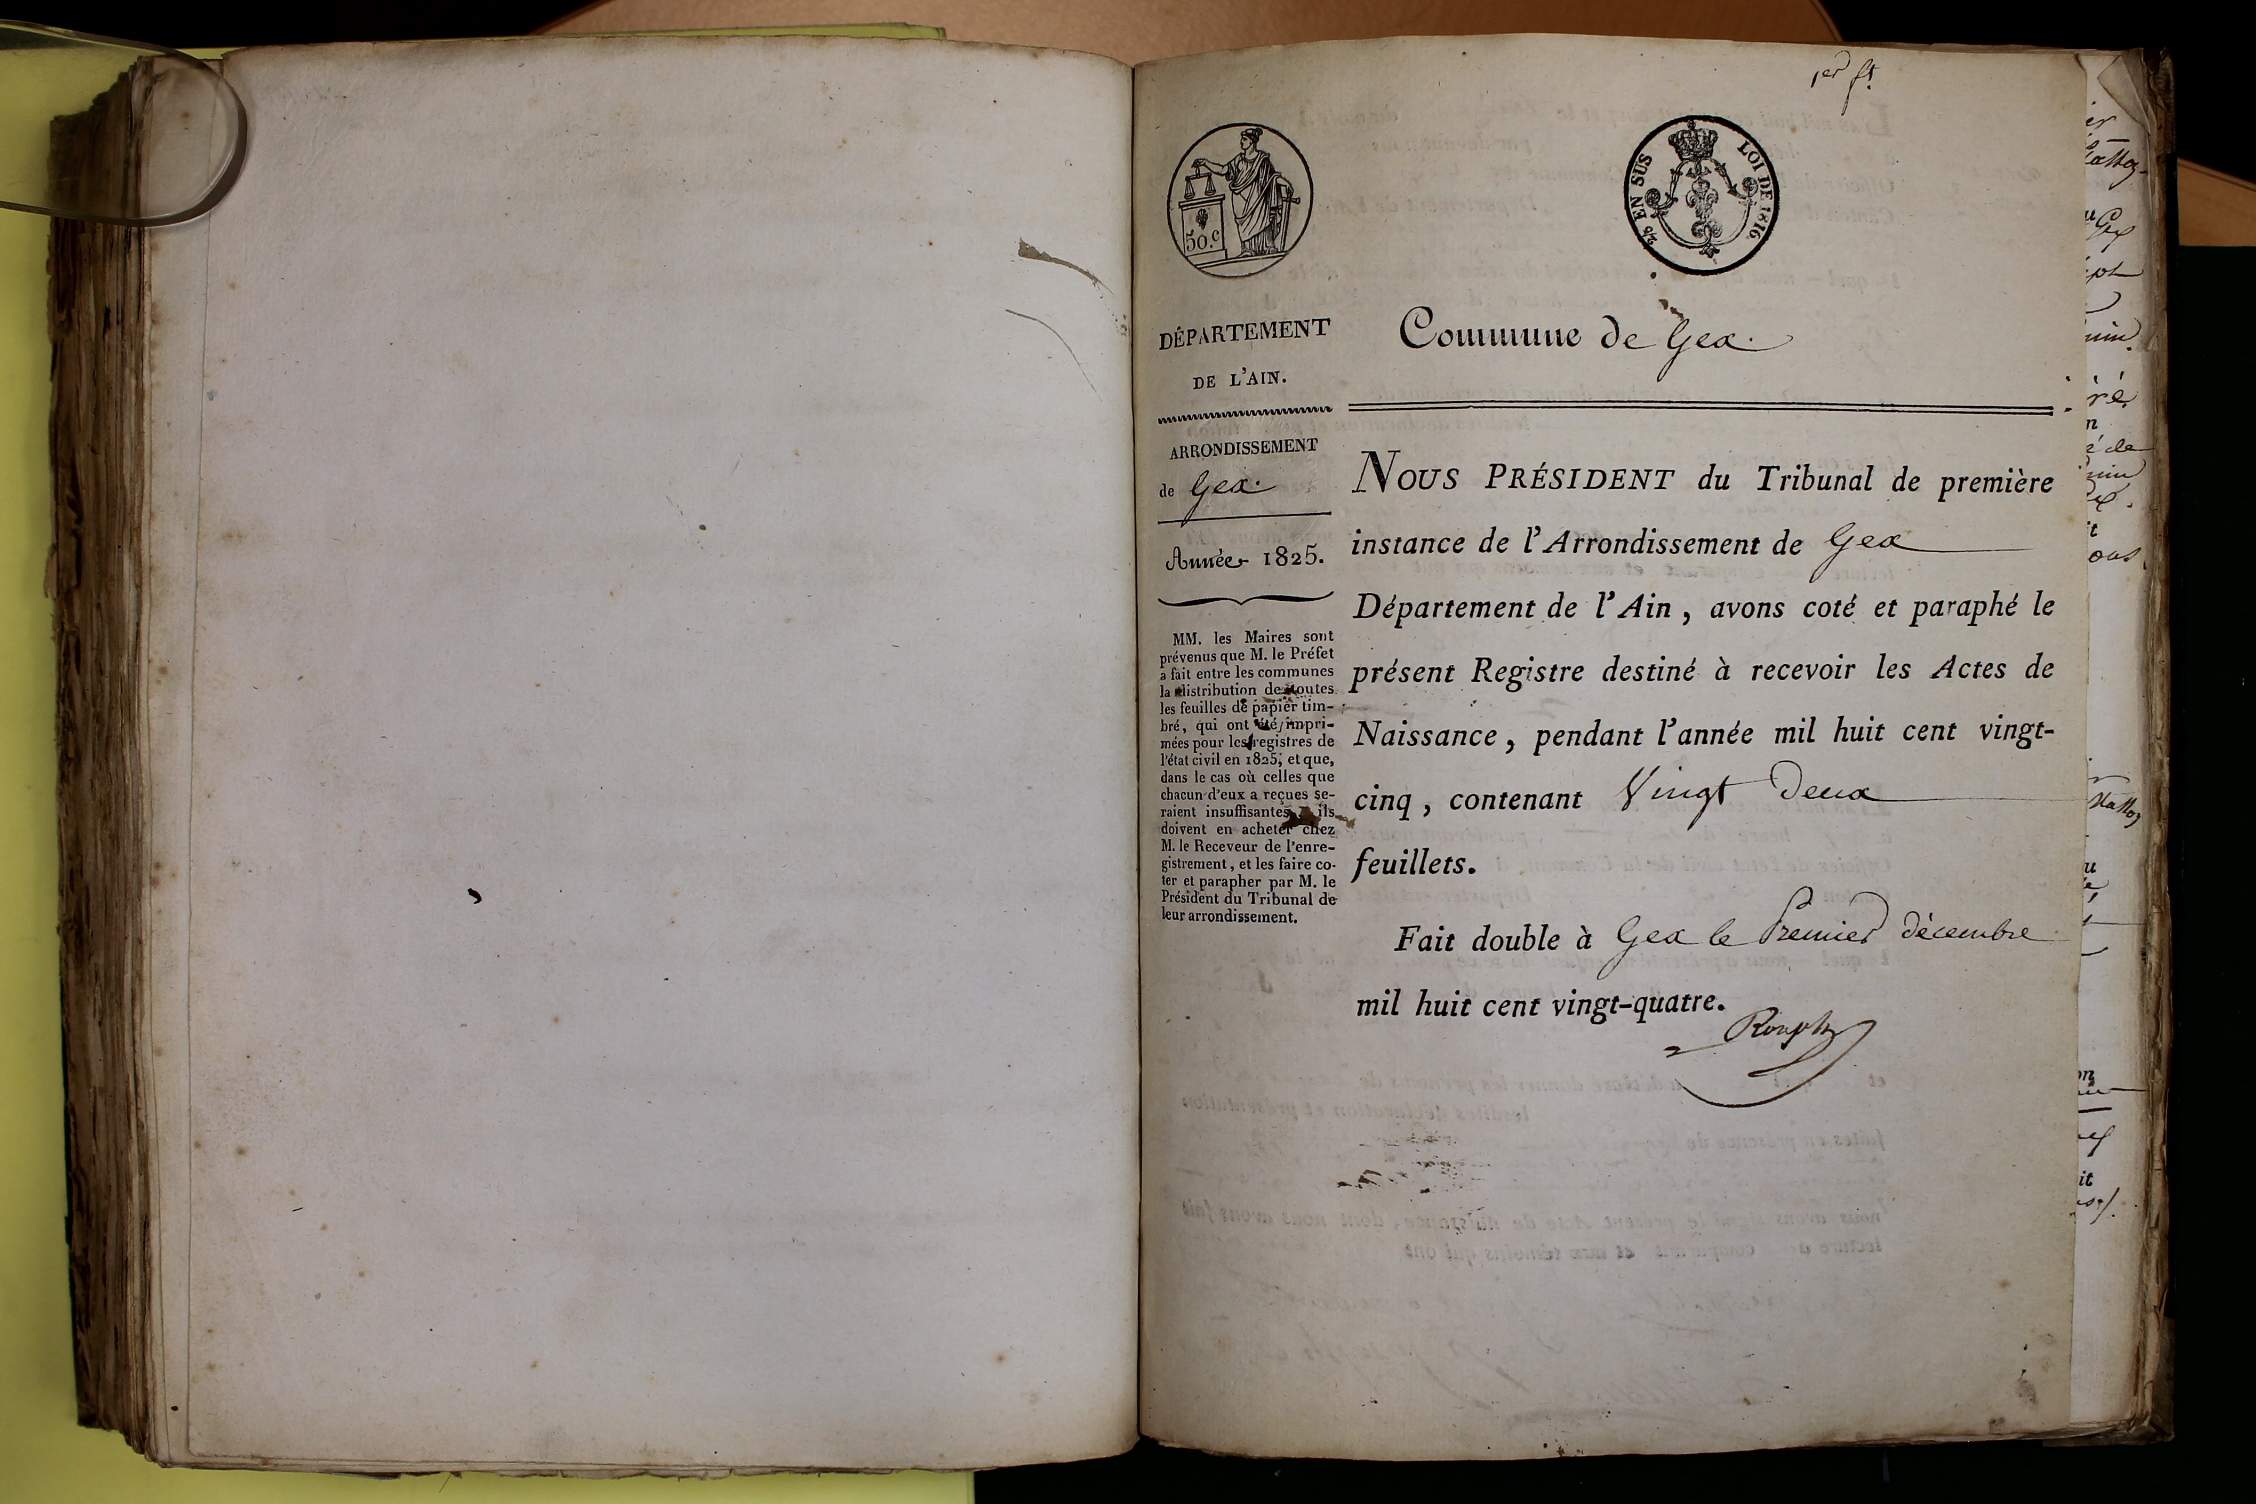 1er ft.
50.c
EN SUS
LOI DE 1816.
DÉPARTEMENT
DE L'AIN.
ARRONDISSEMENT
de Gex.
Année 1825.
MM. les Maires sont
prévenus que M. le Préfet
a fait entre les communes
la distribution de toutes
les feuilles de papier tim-
bré, qui ont été impri-
mées pour les registres de
l'état civil en 1825; et que,
dans le cas où celles que
chacun d'eux a reçues se-
raient insuffisantes, ils
doivent en acheter chez
M. le Receveur de l'enre-
gistrement, et les faire co-
ter et parapher par M. le
Président du Tribunal de
leur arrondissement.
Commune de Gex.
NOUS PRÉSIDENT du Tribunal de première
instance de l'Arrondissement de Gex
Département de l'Ain, avons coté et paraphé le
présent Registre destiné à recevoir les Actes de
Naissance, pendant l'année mil huit cent vingt-
cinq, contenant Vingt Deux
feuillets.
Fait double à Gex le Premier décembre
mil huit cent vingt-quatre.